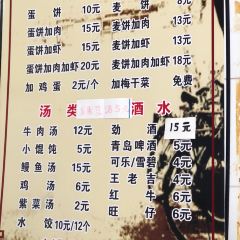 蛋饼 10元 麦饼 8元
蛋饼加肉 15元 麦饼加肉 13元
蛋饼加虾 15元 麦饼加虾 13元
蛋饼加肉加虾 20元 麦饼加肉加虾 18元
加鸡蛋 2元/个 加梅干菜 免费
汤类 酒水
牛肉汤 12元 劲酒 15元
小馄饨 5元 青岛啤 5元
鳗鱼汤 15元 可乐/雪碧 4元
鸡汤 6元 王老吉 6元
紫菜汤 2元 红牛 6元
水饺 10元/12个 旺仔 6元